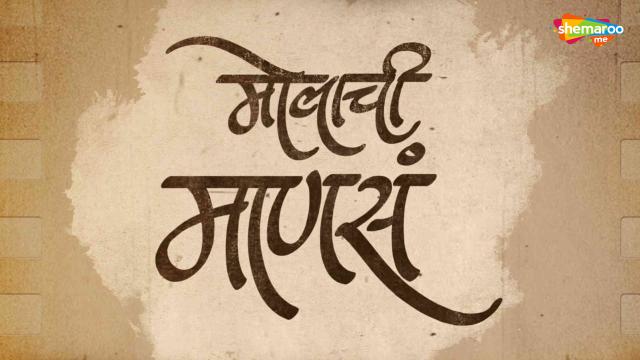 shemaroo
me
मोलाची
माणसं